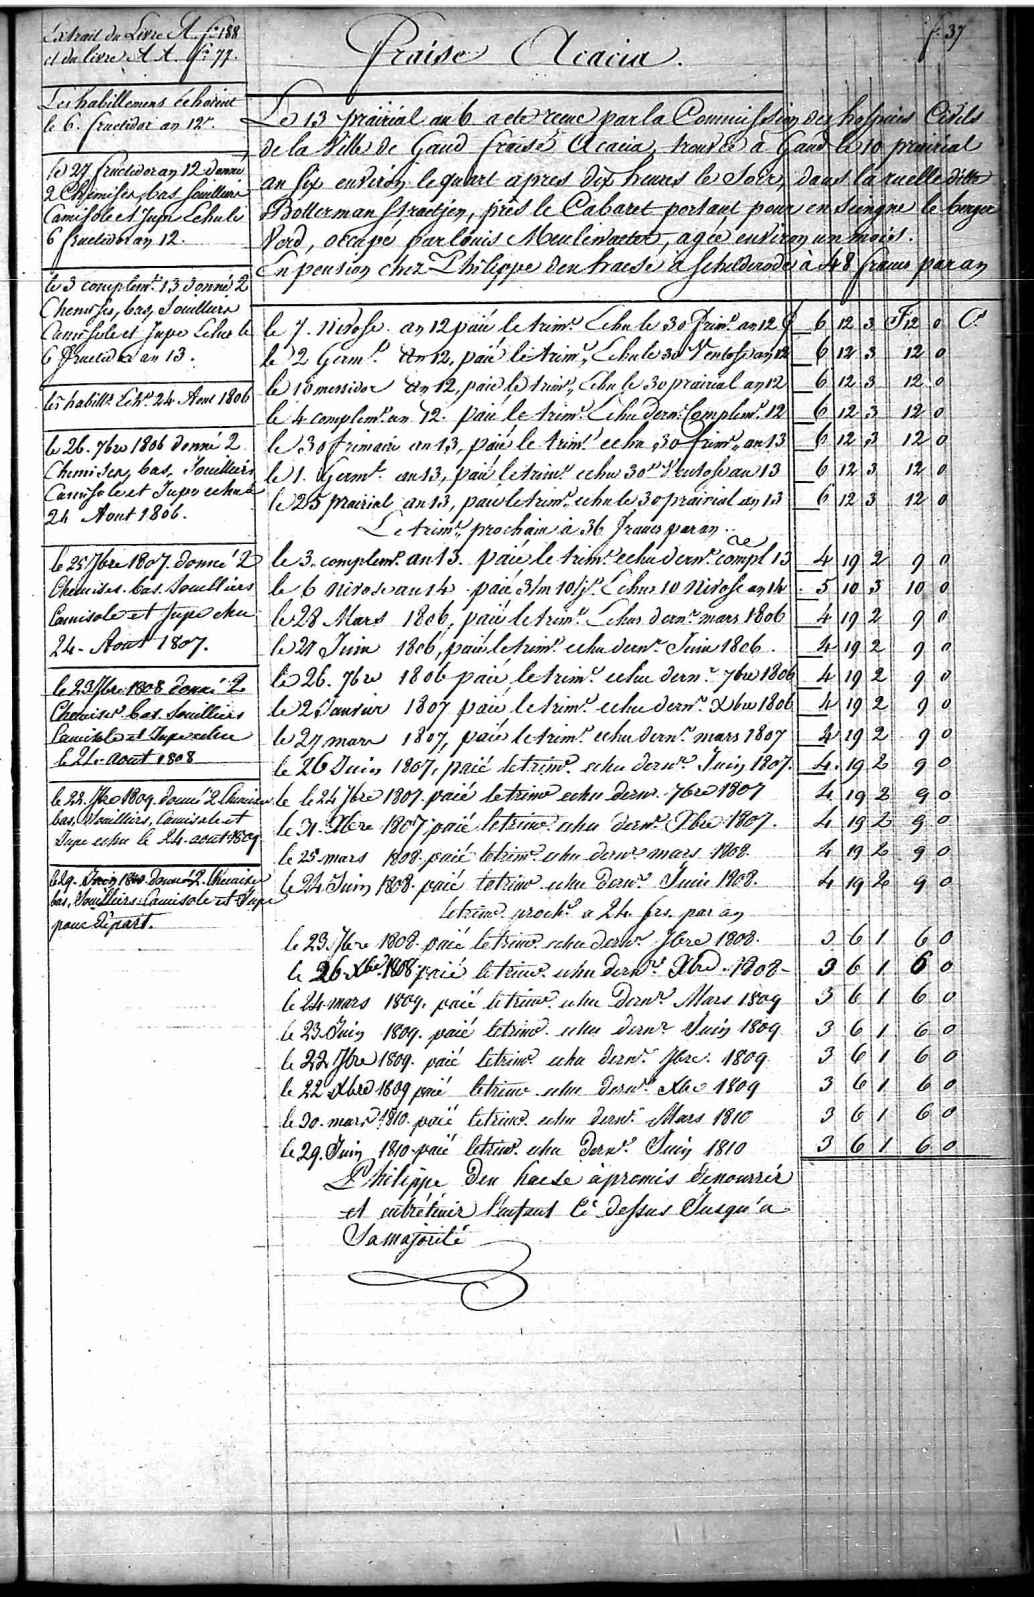 Extrait du Livre A. fo. 188
et du livre AA. fo. 77.
f. 37
Fraise Acacia.
Les habillemens échoient
le 6. fructidor an 12e.
le 27 fructidor an 12 donné
2 Chemises, bas, souilliers
Camisole et Jupe echu le
6 fructidor an 12.
le 3 complemt. 13 donné 2
Chemises, bas, Souilliers
Camisole et Jupe Echu le
6 fructidor an 13.
les habillts. Echs. 24 Aout 1806
le 26. 7bre 1806 donné 2
Chemises, bas, Souilliers
Camisole et Jupe echu le
24 Aout 1806.
le 25 7bre 1807. donné 2
Chemises. bas. Souilliers
Camisole et Jupe echu
24. Aout 1807.
le 23 7bre 1808 donné 2
Chemises. bas. Souilliers
Camisole et Jupe echu
le 24. aout 1808
le 22. 7bre 1809. donné 2 Chemises
bas, Souilliers, Camisole et
Jupe echu le 24. aout 1809
le 29. Juin 1810 donné 2. Chemises
bas, Souilliers, Camisole et Jupe
pour départ.
Le 13 prairial an 6 a eté recue par la Commission des hospices Civils
de la Ville de Gand Fraise Acacia, trouvée à Gand le 10 prairial
an six environ le quart après dix heures le soir, dans la ruelle ditte
Botterman Straetjen, près le Cabaret portant pour enseingne le berger
Verd, occupé par Louis Meulewaeter, agée environ un mois.
En pension chez Philippe den haese à Schelderode à 48 francs par an
le 7. nivose. an 12 paié le trimr. Echu le 30 frimr. an 12 6 12 3 F12 0 Cs
le 2 Germl. an 12, paié le trimr., Echu le 30 Ventose an 12 6 12 3 12 0
le 18 messidor an 12, paié le trimr., Echu le 30 prairial an 12 6 12 3 12 0
le 4 complemr. an 12. paié le trimr. Echu dern. Complemr. 12 6 12 3 12 0
le 30 frimaire an 13, paié le trimr. echu 30 frimr. an 13 6 12 3 12 0
le 1. Germl. an 13, paié le trimr. echu 30 Ventose an 13 6 12 3 12 0
le 25 prairial an 13, paié le trimr. echu le 30 prairial an 13 6 12 3 12 0
Le trimr., prochain à 36 francs par an
le 3. complemr. an 13. paié le trimr. echu dernr. compl re 13 4 19 2 9 0
le 6 nivose an 14. paié 3/m 10 js. Echus 10 nivose an 14. 5 10 3 10 0
le 28 Mars 1806, paié le trimr. Echus dernr. mars 1806 4 19 2 9 0
le 27 Juin 1806, paié le trimr. echu dernr. Juin 1806. 4 19 2 9 0
le 26. 7bre 1806 paié, le trimr. echu dernr. 7bre 1806 4 19 2 9 0
le 2 Janvier 1807 paié, le trimr. echu dernr. Xbre 1806 4 19 2 9 0
le 27 mars 1807, paié le trimr. echu dernr. mars 1807 4 19 2 9 0
le 26 Juin 1807, paié le trimr. echu dernr. Juin 1807. 4 19 2 9 0
le le 24 7bre 1807. paié le trimr echu dernr. 7bre 1807 4 19 2 9 0
le 31. Xbre 1807 paié le trimr. echu dernr. Xbre 1807. 4 19 2 9 0
le 25 mars 1808. paié le trimr. echu dernr. mars 1808. 4 19 2 9 0
le 24 Juin 1808. paié le trimr. echu dernr. Juin 1808. 4 19 2 9 0
le trimr. prochn. a 24 frs. par an
le 23. 7bre 1808. paié le trimr. echu dernr. 7bre 1808. 3 6 1 6 0
le 26 Xbre. 1808 paié le trimr. echu dernr. Xbre 1808 3 6 1 6 0
le 24 mars 1809. paié le trimr. echu dernr. Mars 1809 3 6 1 6 0
le 23 Juin 1809. paié le trimr. echu dernr. Juin 1809 3 6 1 6 0
le 22 7bre 1809. paié le trimr. echu dernr. 7bre. 1809 3 6 1 6 0
le 22 Xbre 1809 paié le trimr. echu dernr. Xbre 1809 3 6 1 6 0
le 30. mars. 1810. paié le trimr. echu dernr. Mars 1810 3 6 1 6 0
le 29. Juin 1810 paié le trimr. echu dernr. Juin 1810 3 6 1 6 0
Philippe Den haese à promis de nourrir
et entrétenir l'enfant ci dessus Jusqu'a
Sa majorité